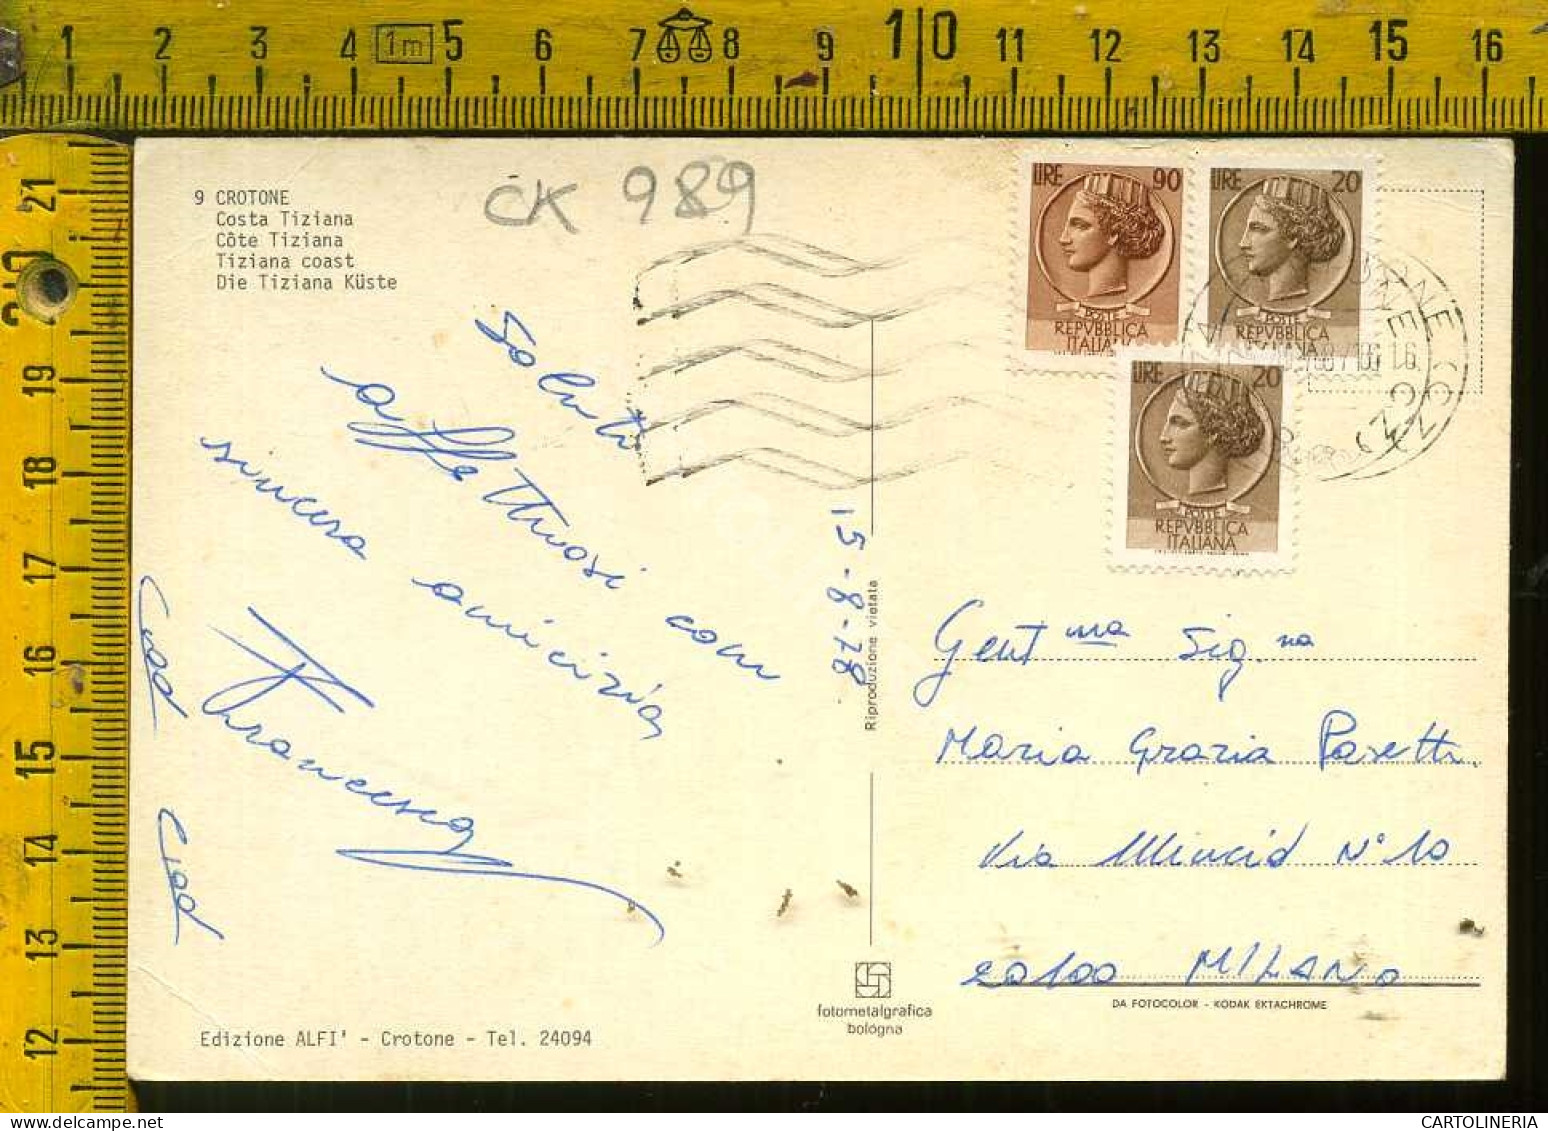 1 2 3 4 1m 5 6 7 8 9 10 11 12 13 14 15 16
21
20
19
18
17
16
15
14
13
12
9 CROTONE
Costa Tiziana
Côte Tiziana
Tiziana coast
Die Tiziana Küste
CK 989
LIRE 90
POSTE
REPVBBLICA
ITALIANA
LIRE 20
POSTE
REPVBBLICA
ITALIANA
LIRE 20
POSTE
REPVBBLICA
ITALIANA
Saluti
affettuosi con
sincera amicizia
Francesca
Ciao
Ciao
15-8-78
Riproduzione vietata
Gent.ma Sig.na
Maria Grazia Pasetti
Via Mincio N° 10
20100 MILANO
DA FOTOCOLOR - KODAK EKTACHROME
fotometalgrafica
bologna
Edizione ALFI' - Crotone - Tel. 24094
CARTOLINERIA